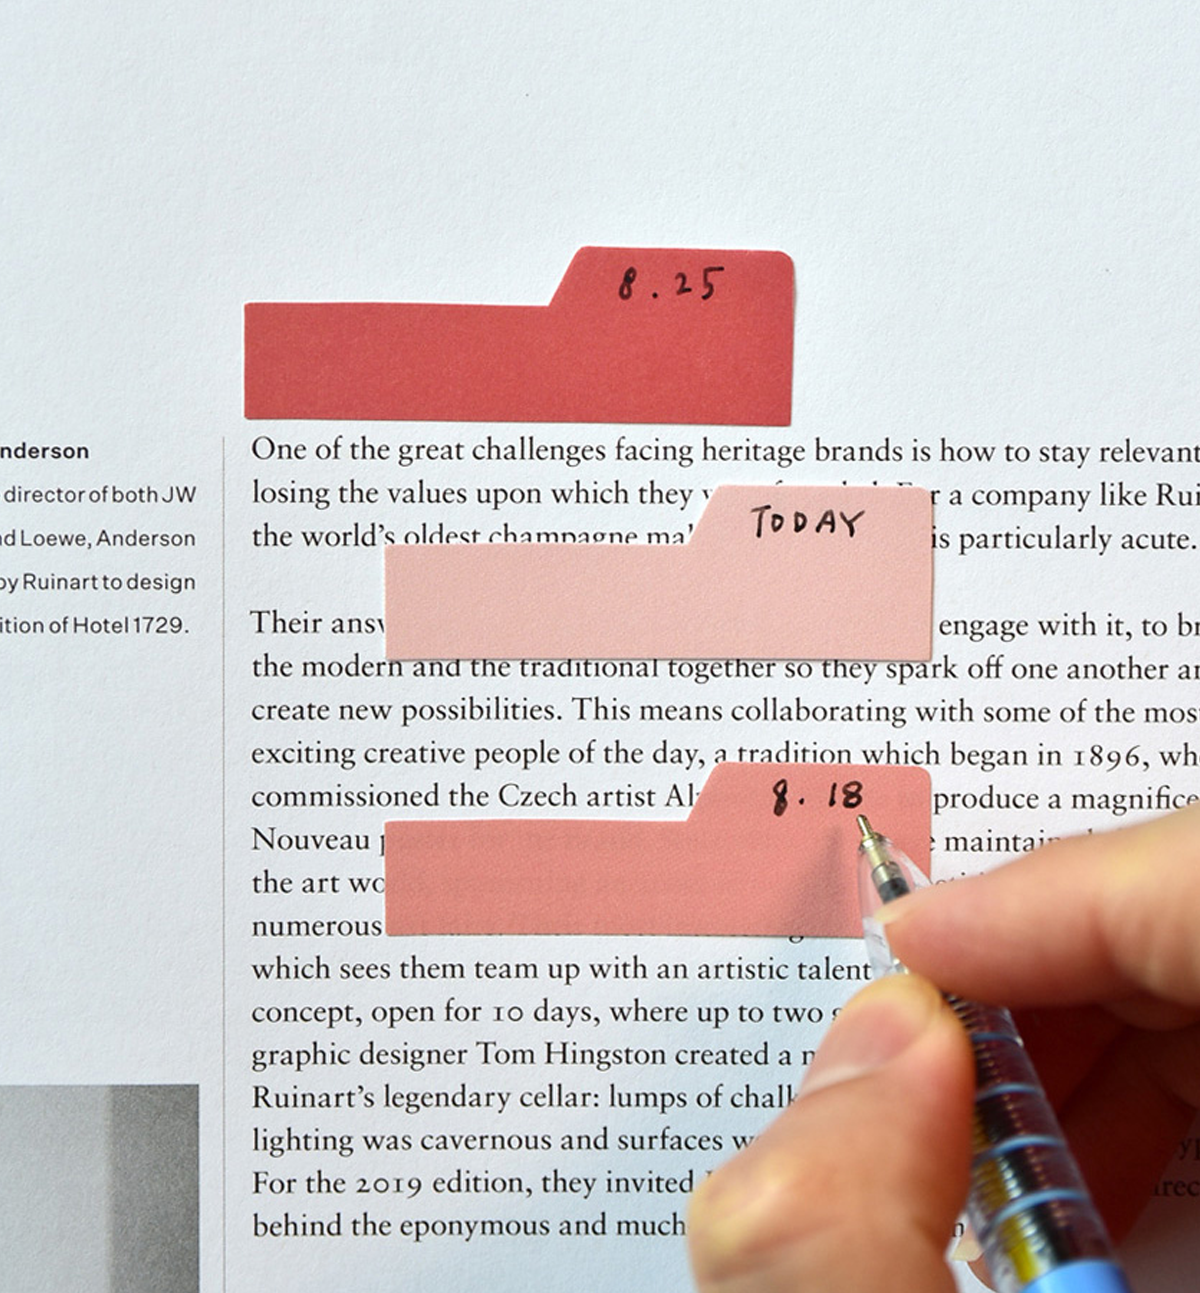 8.25
nderson
director of both JW
d Loewe, Anderson
by Ruinart to design
ition of Hotel 1729.
One of the great challenges facing heritage brands is how to stay relevant
losing the values upon which they
r a company like Rui
the world's oldest champagne ma
is particularly acute.
TODAY
Their answ
engage with it, to br
the modern and the traditional together so they spark off one another an
create new possibilities. This means collaborating with some of the mos
exciting creative people of the day, a tradition which began in 1896, wh
commissioned the Czech artist Al
produce a magnifice
8.18
Nouveau
maintai
the art wo
numerous
which sees them team up with an artistic talent
concept, open for 10 days, where up to two
graphic designer Tom Hingston created a
Ruinart's legendary cellar: lumps of chalk
lighting was cavernous and surfaces w
For the 2019 edition, they invited
behind the eponymous and much